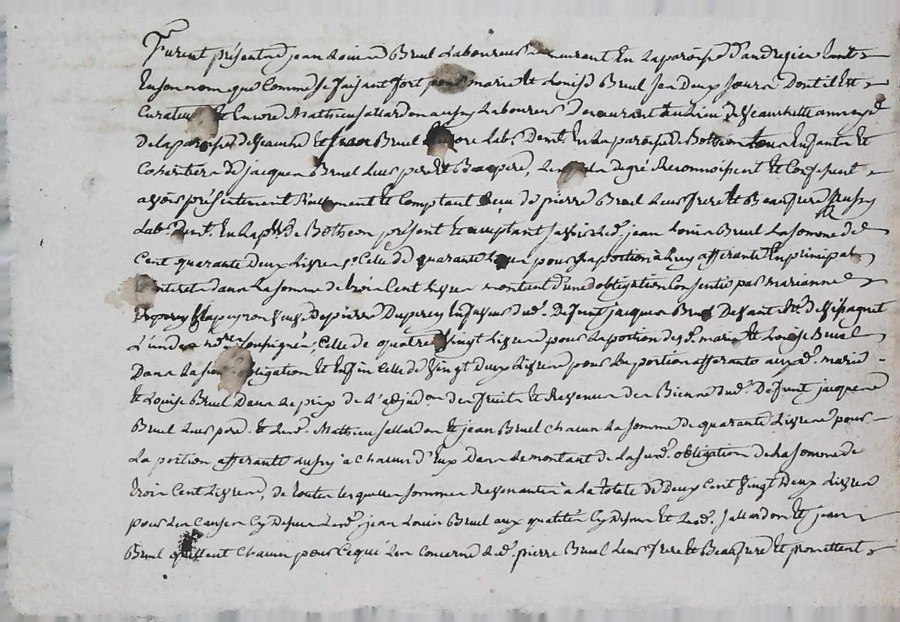 Furent présents jean Louis Bruel Laboureur demeurant En La paroisse D'andregieu tant
En son nom que Comme se faisant fort pour marie Et Louise Bruel ses Deux soeurs Dont il Est
Curateur Et Encore Mathieu Jallardon aussy Laboureur Demeurant annexe
De la paroisse de Et jean Bruel Lab.r Dem.t En La paroisse de Bothéon tous Enfants Et
Cohéritiers De jacques Bruel Leur pere Et Beaupere, Lesquels De gré Reconnoissent Et Confessent
avoir présentement Réellement Et Comptant Reçu de pierre Bruel Leur frere Et Beaufrere aussy
Lab.r Dem.t En La p.sse de Bothéon présent Et acceptant sçavoir Led. jean Louis Bruel La somme de
Cent quarante Deux Livres, Celle de quarante Livres pour sa portion à Luy afferante En principal
Interets dans La somme de trois Cent Livres montant d'une obligation Consentie par marianne
Duperey De pierre Duperey En faveur dud. Defunt jacques Bruel Devant M.e
L'un des no.res soussignés, Celle de quatre Vingt Livres pour La portion desd. marie Et Louise Bruel
Dans La susd. obligation Et Enfin Celle de Vingt Deux Livres pour La portion afferante auxd. marie
Et Louise Bruel Dans Le prix de L'adjud.on des fruits Et Revenus des Biens dud. Defunt jacques
Bruel Leur pere. Et Lesd. Mathieu Jallardon Et jean Bruel Chacun La somme de quarante Livres pour
La portion afferante aussy à Chacun d'Eux Dans Le montant de La susd. obligation de La somme de
trois Cent Livres, De toutes lesquelles sommes Revenantes à La totale de Deux Cent Vingt Deux Livres
pour Les Causes Cy Dessus Led. jean Louis Bruel aux qualités Cy Dessus Et Lesd. Jallardon Et jean
Bruel quittent Chacun pour Ce qui Les Concerne Led. pierre Bruel Leur frere Et Beaufrere Et promettent